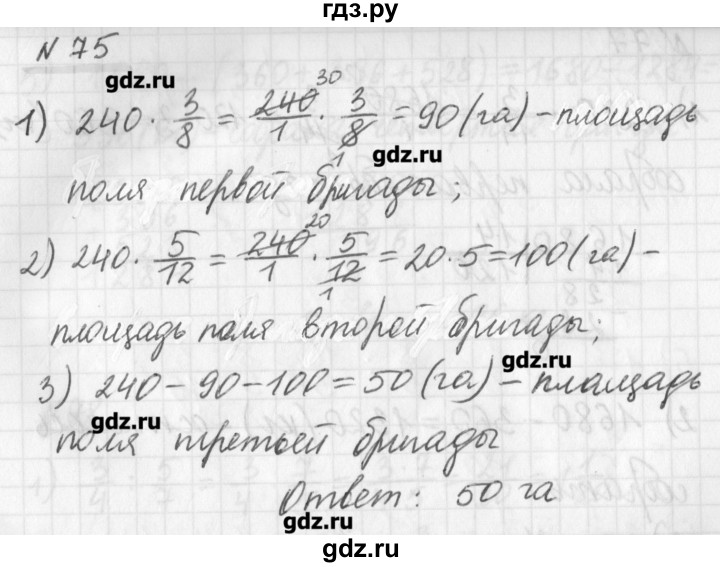 гдз.ру
N 75
gdz.ru
1) 240 · 3/8 = 240/1 · 3/8 = 90 (га) – площадь
30
1
gdz.ru
поля первой бригады;
2) 240 · 5/12 = 240/1 · 5/12 = 20 · 5 = 100 (га) –
20
1
площадь поля второй бригады;
gdz.ru
3) 240 – 90 – 100 = 50 (га) – площадь
gdz.ru
поля третьей бригады
Ответ: 50 га
gdz.ru
gdz.ru